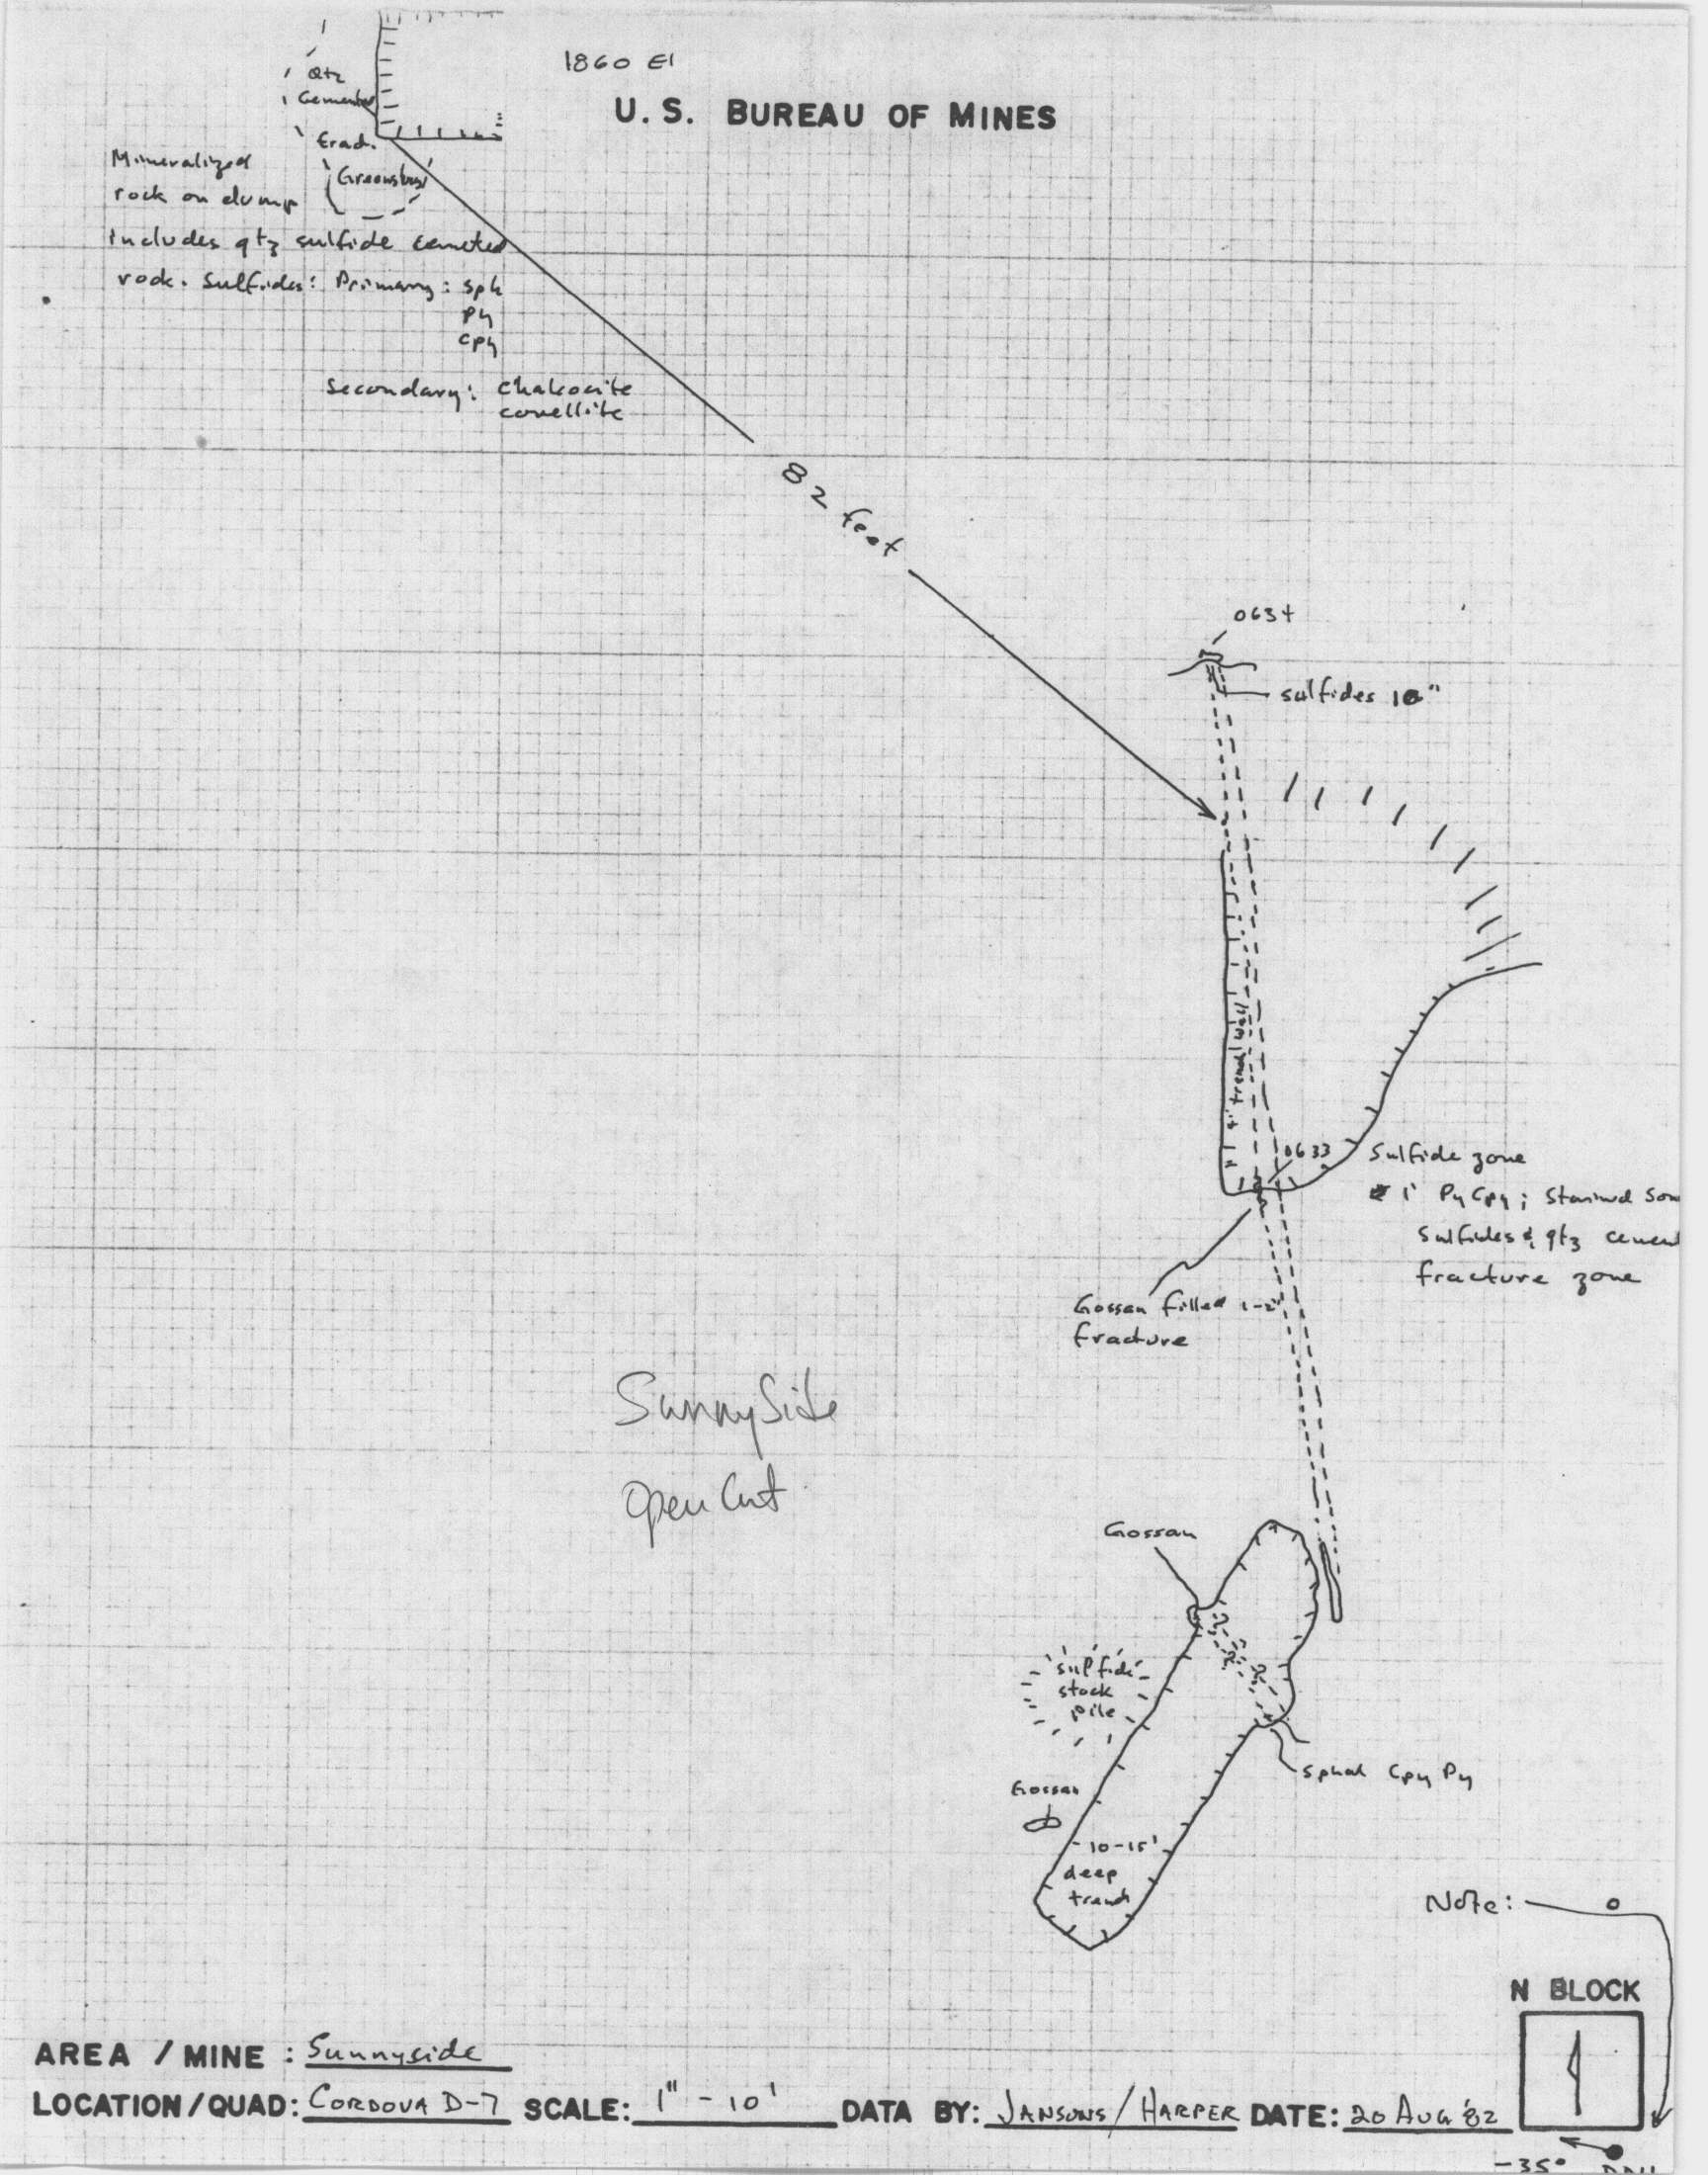 1860 El
U.S. BUREAU OF MINES
Qtz
Cemented
Frad.
Greenstns
Mineralized
rock on dump
includes qtz sulfide cemeted
rock. Sulfides: Primary: sph
py
cpy
Secondary: Chalcocite
covellite
82 feet
0634
sulfides 10"
trench wall
0633
Sulfide zone
1' Py Cpy; Stained som
sulfides & qtz cement
fracture zone
Gossan filled 1-2"
fracture
SunnySide
Open Cut
Gossan
sulfide
stock
pile
Sphal Cpy Py
Gossan
10-15'
deep
trench
Note:
N BLOCK
AREA / MINE : Sunnyside
LOCATION/QUAD: CORDOVA D-7 SCALE: 1" - 10' DATA BY: JANSONS/HARPER DATE: 20 AUG '82
-35°